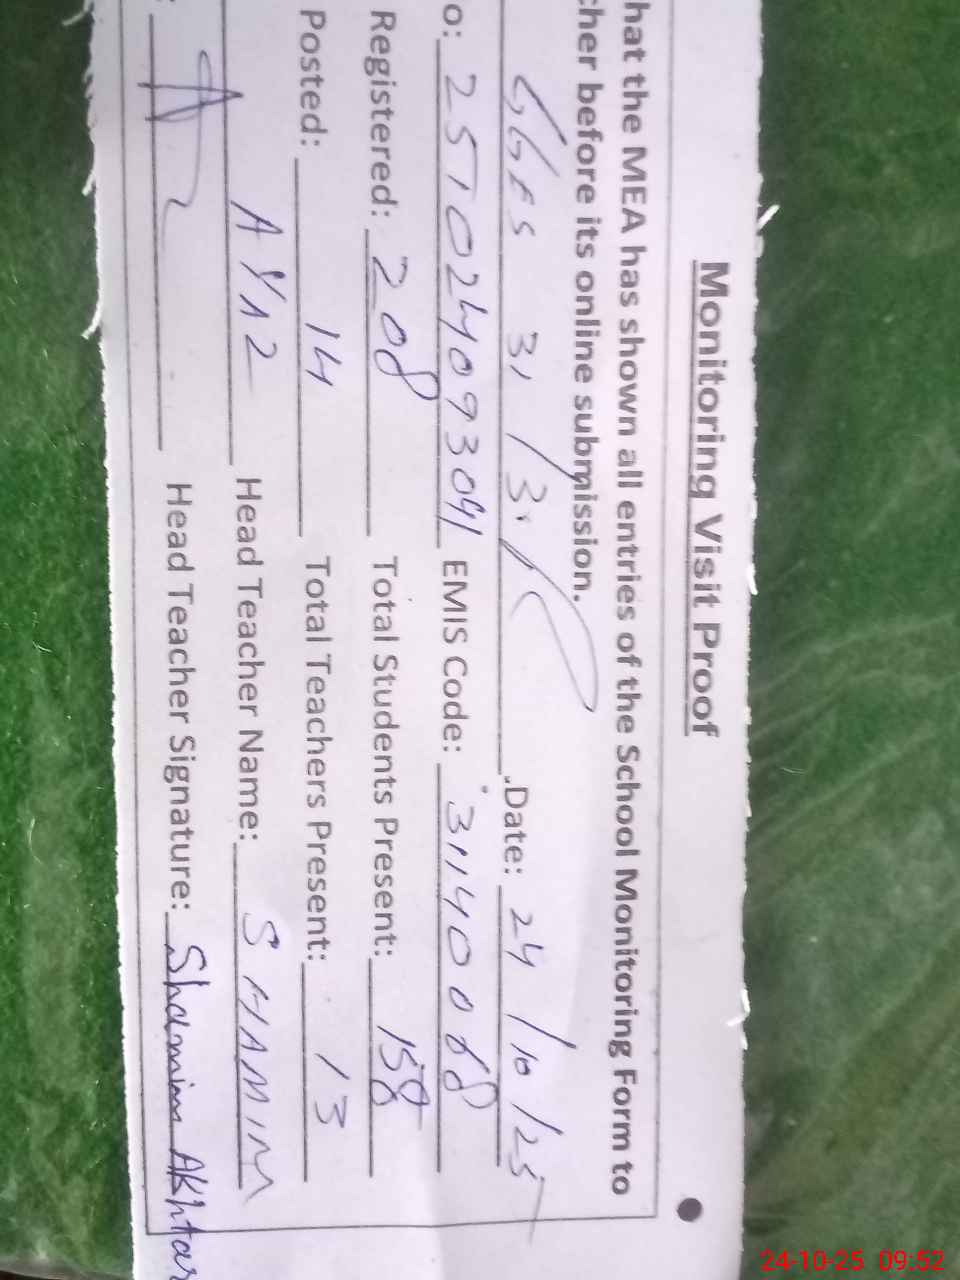 Monitoring Visit Proof
hat the MEA has shown all entries of the School Monitoring Form to
cher before its online submission.
GGES 31/3.R Date: 24/10/25
o: 25102409304 EMIS Code: 31140068
Registered: 208 Total Students Present: 158
Posted: 14 Total Teachers Present: 13
AYAZ Head Teacher Name: SHAMIM
: Head Teacher Signature: Shamim Akhtar
24-10-25 09:52